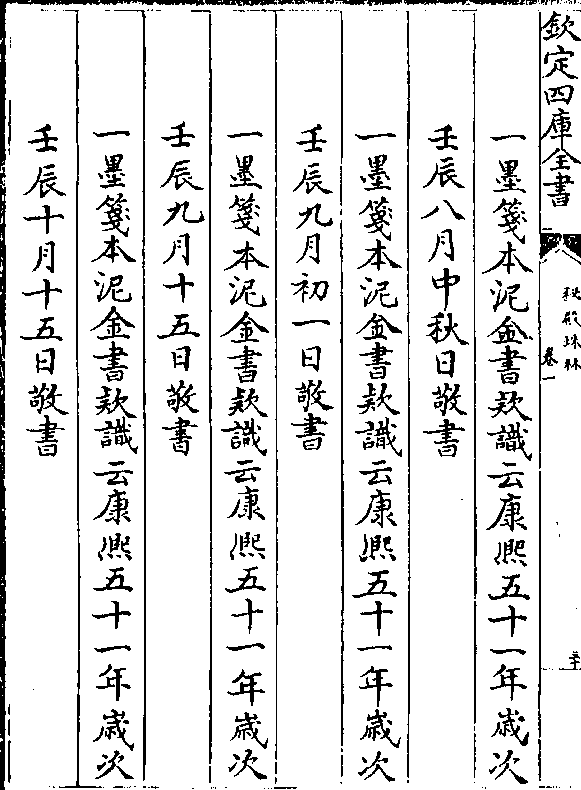 欽定四庫全書
秘殿珠林
卷一
二十
一墨箋本泥金書欵識云康熈五十一年歲次
壬辰八月中秋日敬書
一墨箋本泥金書欵識云康熈五十一年歲次
壬辰九月初一日敬書
一墨箋本泥金書欵識云康熈五十一年歲次
壬辰九月十五日敬書
一墨箋本泥金書欵識云康熈五十一年歲次
壬辰十月十五日敬書